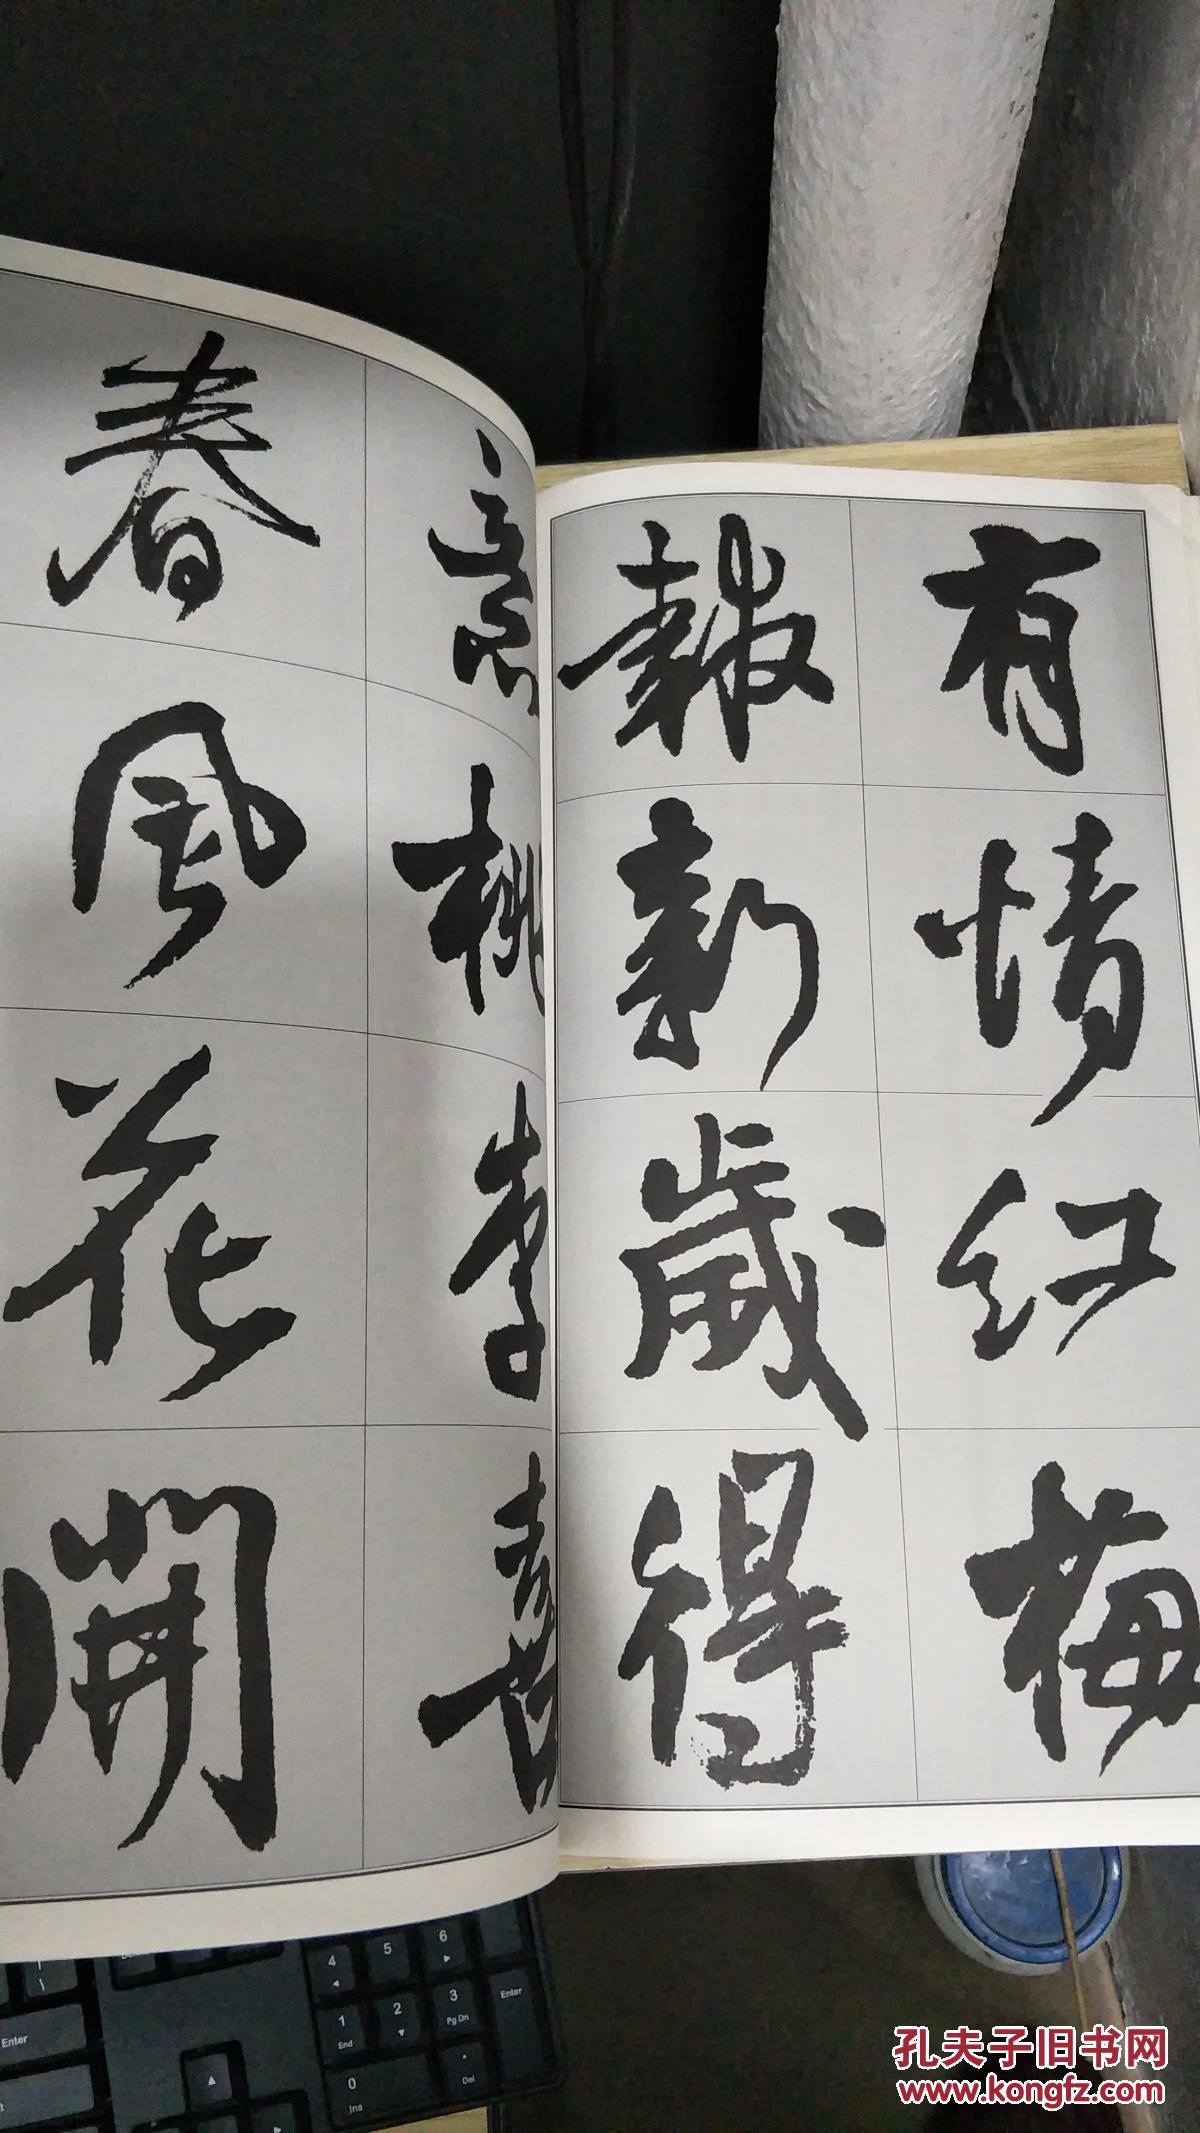 有情红梅
報新歲得
意桃李喜
春風花開
4
5
6
1
End
2
3
Pg Dn
Enter
0
Ins
.
Del
Enter
孔夫子旧书网
www.kongfz.com